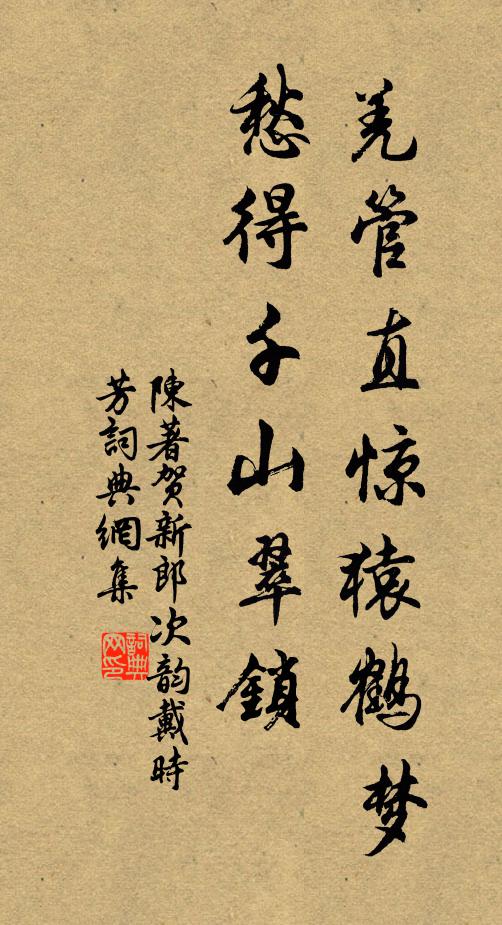 羌管直惊猿鹤梦
愁得千山翠鎖
陳著贺新郎次韵戴時
芳詞典網集
詞典
网印